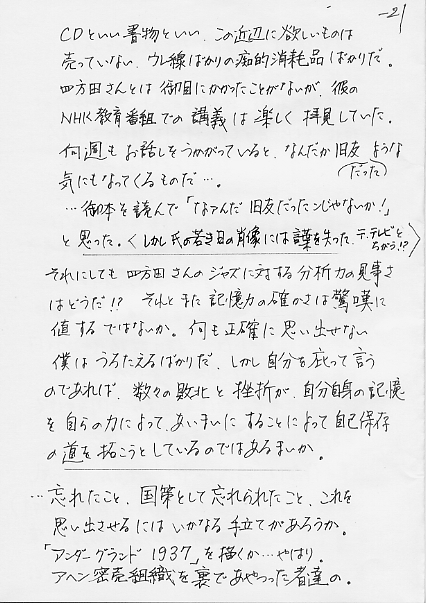 -21
CDといい書物といい、この近辺に欲しいものは
売っていない、ウレ線ばかりの痴的消耗品ばかりだ。
四方田さんとは御目にかかったことがないが、彼の
NHK教育番組での講義は楽しく拝見していた。
何週もお話しをうかがっていると、なんだか旧友ような
だった
気にもなってくるものだ…。
…御本を読んで「なァんだ旧友だったンじゃないか!」
と思った。〈しかし氏の若き日の肖像には言葉を失った、テ、テレビと
ちがう!?〉
それにしても四方田さんのジャズに対する分析力の見事さ
はどうだ!? それとまた記憶力の確かさは驚嘆に
値するではないか。何も正確に思い出せない
僕はうろたえるばかりだ、しかし自分を庇って言う
のであれば、数々の敗北と挫折が、自分自身の記憶
を自らの力によって、あいまいにすることによって自己保存
の道を拓こうとしているのではあるまいか。
…忘れたこと、国策として忘れられたこと、これを
思い出させるにはいかなる手立てがあろうか。
「アンダーグランド 1937」を描くか…やはり。
アヘン密売組織を裏であやつった者達の。